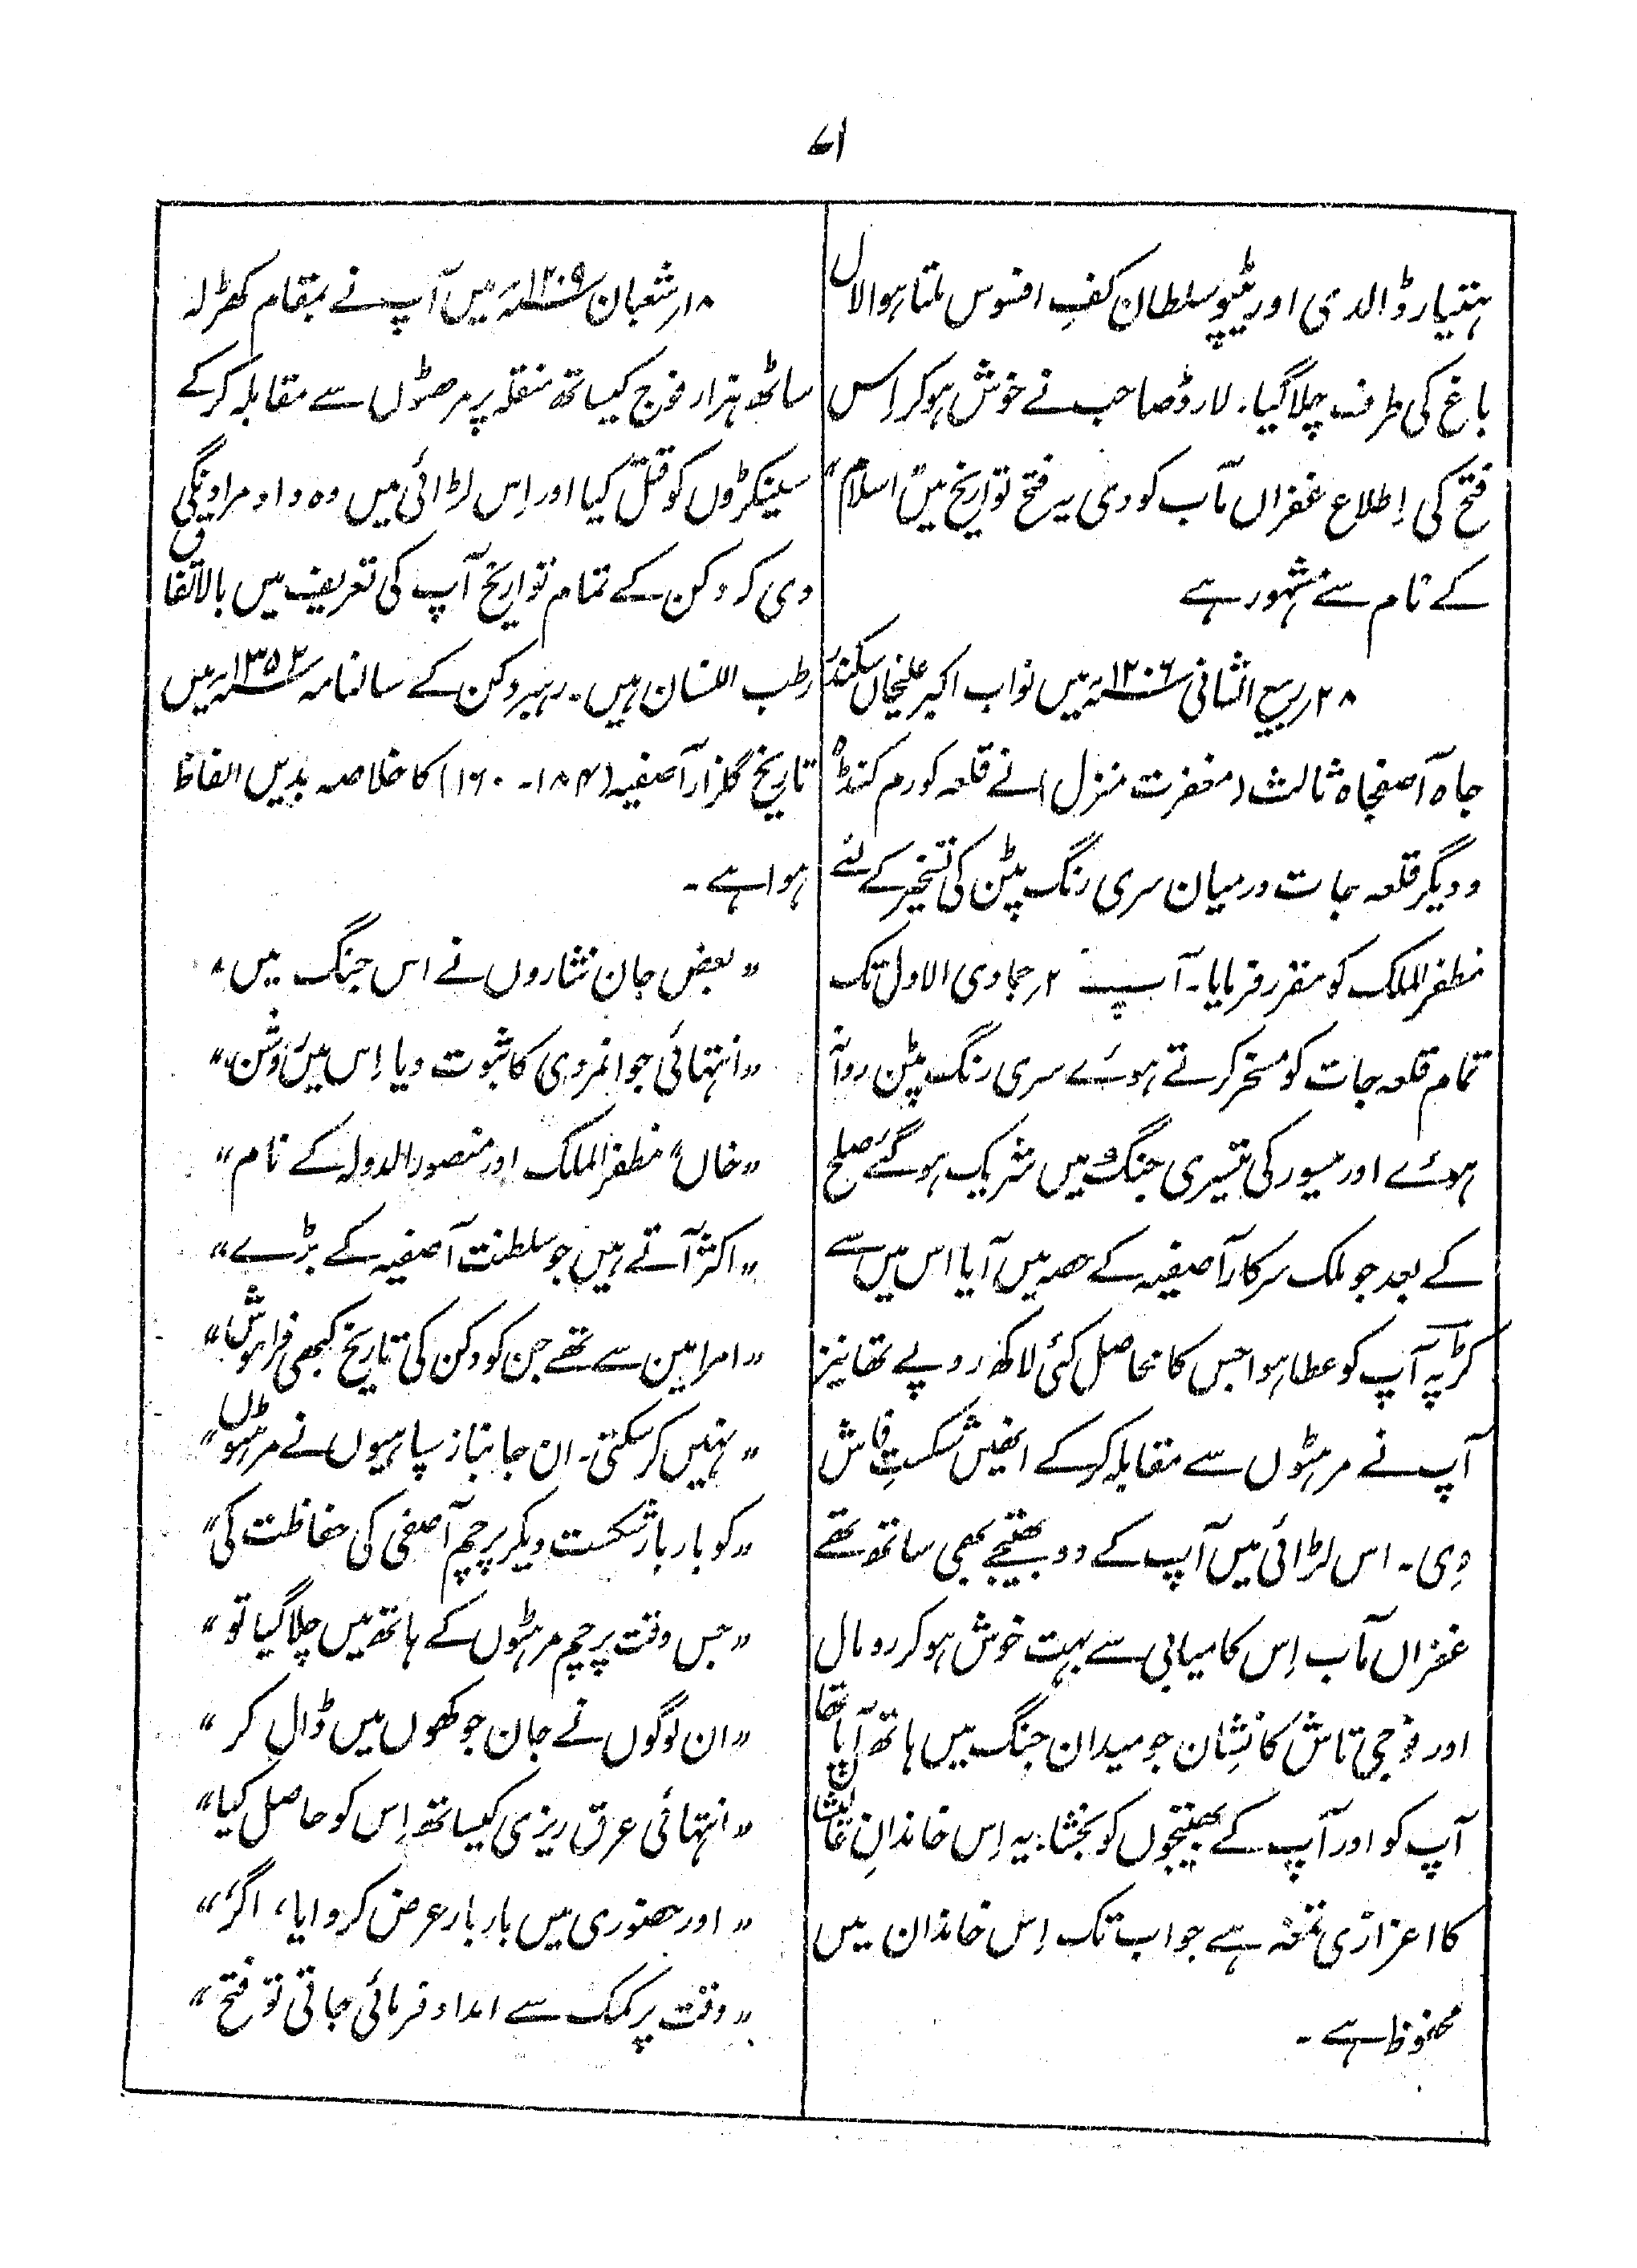 ۷۱
ہتیار ڈالدی اور ٹیپو سلطان کفِ افسوس ملتا ہوا لال
باغ کی طرف چلا گیا۔ لارڈ صاحب نے خوش ہوکر اِس
فتح کی اِطلاع غفراں مآب کو دی یہ فتح تواریخ میں "اسلام"
کے نام سے مشہور ہے
۲۸ ربیع الثانی ۱۲۰۶ھ میں نواب اکبر علیخاں سکندر
جاہ آصفجاہ ثالث (مغفرت منزل) نے قلعہ کورم کنڈہ
و دیگر قلعہ جات درمیان سری رنگ پٹن کی تسخیر کے لئے
مظفر الملک کو مقرر فرمایا۔ آپ ۲؍ جمادی الاول تک
تمام قلعہ جات کو مسخر کرتے ہوئے سری رنگ پٹن روانہ
ہوئے اور میسور کی تیسری جنگ میں شریک ہوگئے صلح
کے بعد جو ملک سرکار آصفیہ کے حصہ میں آیا اس میں سے
کڑپہ آپ کو عطا ہوا جس کا محاصل کئی لاکھ روپے تھا نیز
آپ نے مرہٹوں سے مقابلہ کرکے انھیں شکستِ فاش
دِی۔ اس لڑائی میں آپ کے دو بھتیجے بھی ساتھ تھے
غفراں مآب اِس کامیابی سے بہت خوش ہوکر رومال
اور فوجی تاش کا نشِان جو میدان جنگ میں ہاتھ آیا تھا
آپ کو اور آپ کے بھتیجوں کو بخشا۔ یہ اِس خاندانِ عالیشان
کا اعزازی تمغہ ہے جو اب تک اِس خاندان میں
محفوظ ہے۔
۱۸؍ شعبان ۱۲۰۹ھ میں آپ نے بمقام کھڑلہ
ساٹھ ہزار فوج کیساتھ منقلہ پر مرھٹوں سے مقابلہ کرکے
سینکڑوں کو قتل کیا اور اِس لڑائی میں وہ داد مراونگی
دی کہ دکن کے تمام تواریخ آپ کی تعریف میں بالاتفاق
رطب اللسان ہیں۔ رہبر دکن کے سالنامہ ۱۳۵۲ھ میں
تاریخ گلزار آصفیہ (۱۸۴۔ ۱۶۰) کا خلاصہ بدیں الفاظ
ہوا ہے۔
"بعض جان نثاروں نے اس جنگ میں"
"انتہائی جوانمردی کا ثبوت دیا اِس میں روشن"
"خاں، مظفر الملک اور منصور الدولہ کے نام"
"اکثر آتے ہیں جو سلطنت آصفیہ کے بڑے"
"امرا مین سے تھے جن کو دکن کی تاریخ کبھی فراموش"
"نہیں کرسکتی۔ ان جانباز سپاہیوں نے مرہٹوں"
"کو بار بار شکست دیکر پرچم آصفی کی حفاظت کی"
"جس وقت پرچم مرہٹوں کے ہاتھ میں چلا گیا تو"
"ان لوگوں نے جان جوکھوں میں ڈال کر"
"انتہائی عرق ریزی کیساتھ اِس کو حاصل کیا"
"اور حضوری میں بار بار عرض کروایا، اگر"
"وقت پر کمک سے امداد فرمائی جاتی تو فتح"